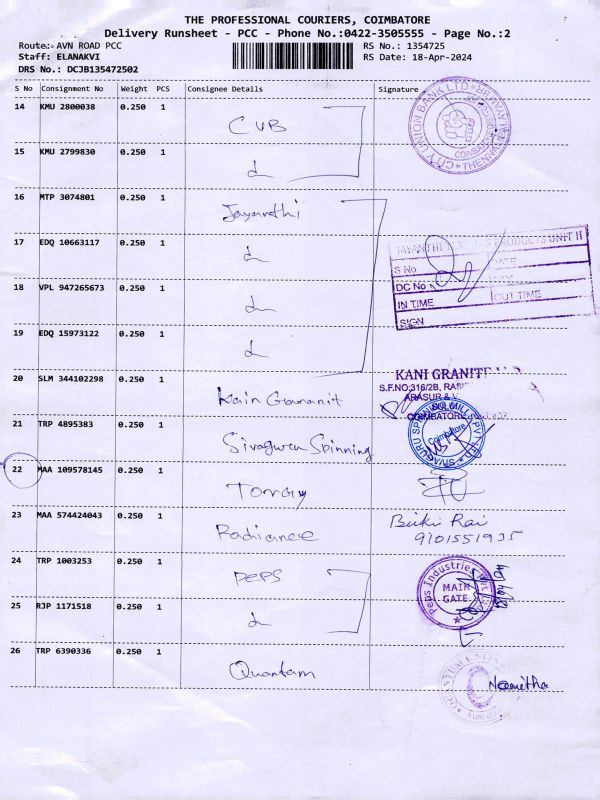 THE PROFESSIONAL COURIERS, COIMBATORE
Delivery Runsheet - PCC - Phone No.:0422-3505555 - Page No.:2
Route: AVN ROAD PCC RS No.: 1354725
Staff: ELANAKVI RS Date: 18-Apr-2024
DRS No.: DCJB135472502
S No Consignment No Weight PCS Consignee Details Signature
14 KMU 2800038 0.250 1 CUB
CITY UNION BANK LTD COIMBATORE
15 KMU 2799830 0.250 1
16 MTP 3074801 0.250 1 Jayanthi
17 EDQ 10663117 0.250 1
JAYANTHI PRODUCTS UNIT II
S No DATE
18 VPL 947265673 0.250 1
DC No
IN TIME OUT TIME
SIGN
19 EDQ 15973122 0.250 1
20 SLM 344102298 0.250 1 Kain Gorranit
KANI GRANIT
S.F.NO:316/2B,
ARASUR &
SULUR
COIMBATORE
21 TRP 4895383 0.250 1 Sivagurn Spinning
SIVAGURU SPINNING MILL PVT LTD Coimbatore
22 MAA 109578145 0.250 1 Torray
23 MAA 574424043 0.250 1 Radiance
Biki Rai
9101551935
24 TRP 1003253 0.250 1 PEPS
Peps Industries
MAIN
GATE
25 RJP 1171518 0.250 1
26 TRP 6390336 0.250 1 Quantam
Namitha